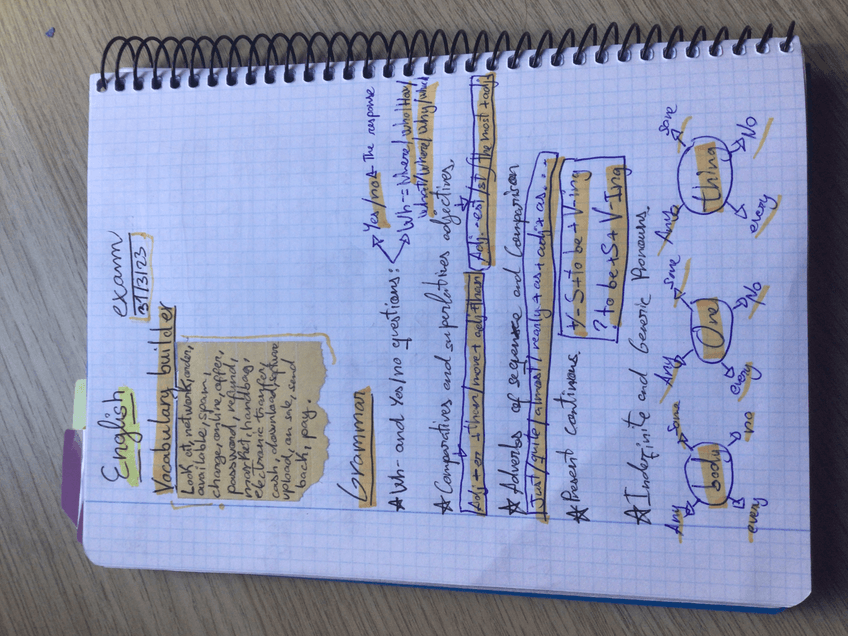 English exam
31/3/23
Vocabulary builder
Look at, network, order,
available, spam,
change, online, offer,
password, refund,
market, handbag,
electronic transfer,
cash, download, software
upload, on sale, send
back, pay.
Grammar
☆ Wh- and Yes/no questions: Yes/no - The response
Wh- = Where/who/How/
what/where/why/
☆ Comparatives and superlatives adjectives.
Adj + er + than/more + adj + than Adj + est/st/the most + adj
☆ Adverbs of sequence and Comparison
Just/quite/almost/nearly + as + adj + as...
☆ Present continous. +/- S + to be + V-ing
? to be + S + V-Ing
☆ Indefinite and Generic Pronouns.
Any some Any some Any some
body One thing
every no every No every No